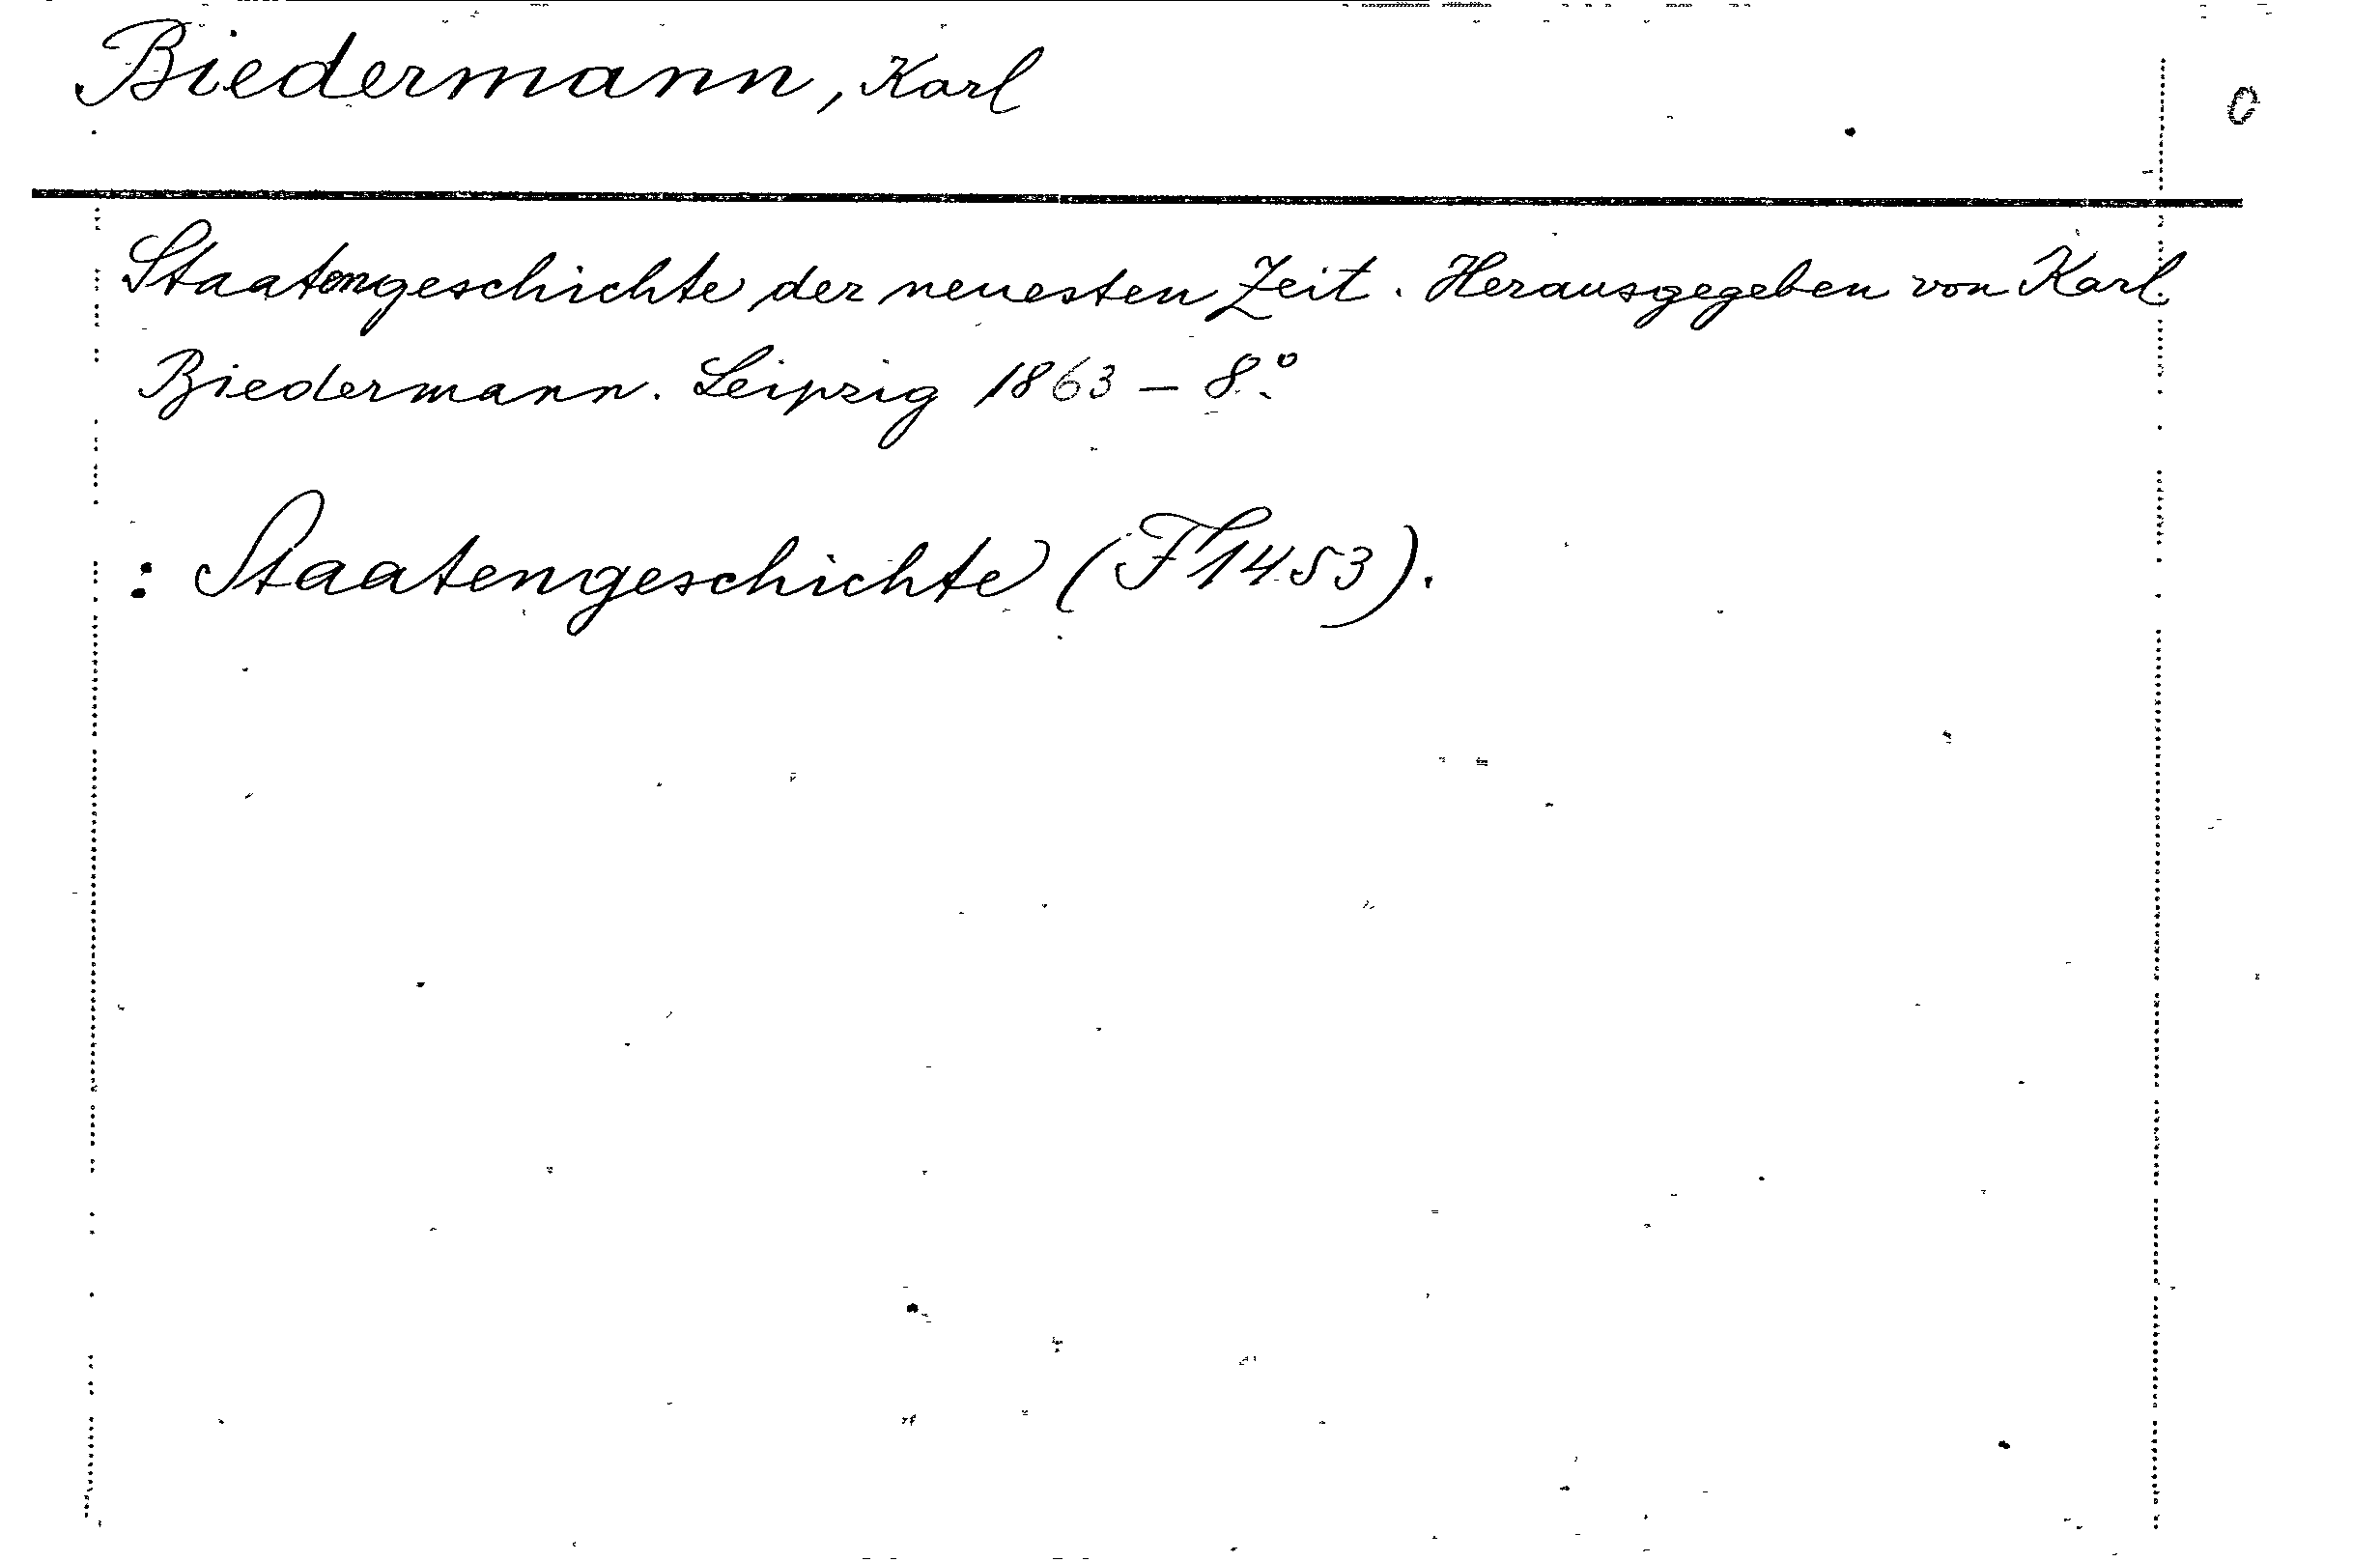 Biedermann, Karl
C
Staatengeschichte der neuesten Zeit. Herausgegeben von Karl
Biedermann. Leipzig 1863 – 8.º
: Staatengeschichte (F 1453).